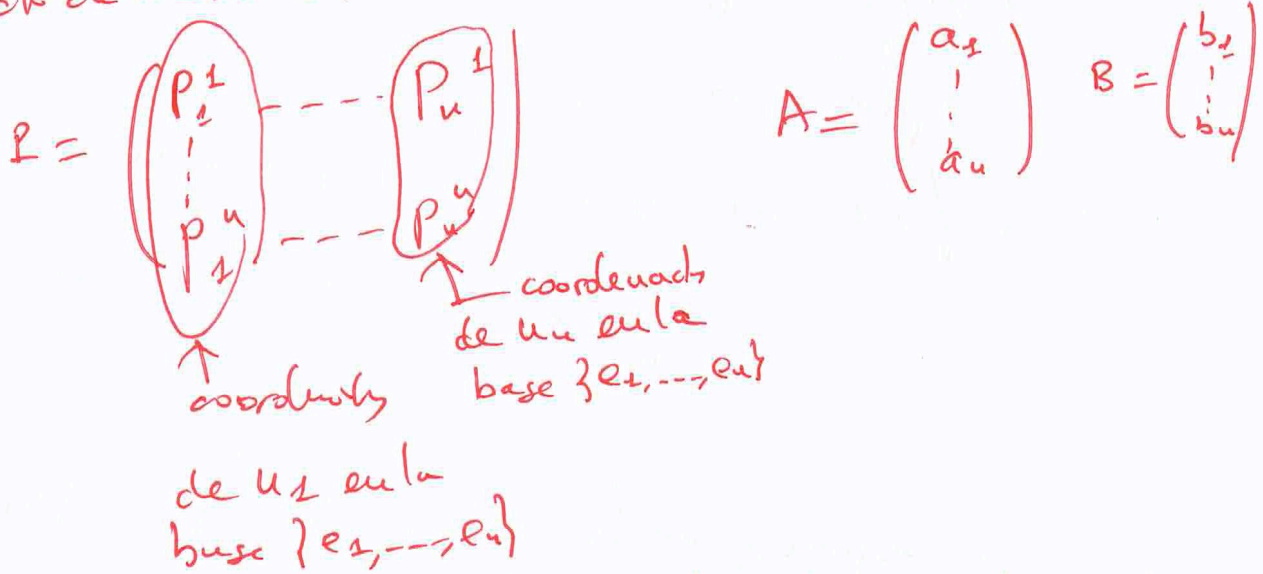 P = ( p_1^1 ---- p_n^1 )
p_1^n --- p_n^n
A = ( a_1 ⋮ a_n ) B = ( b_1 ⋮ b_n )
coordenadas
de u_n en la
base {e_1,---,e_n}
coordenadas
de u_1 en la
base {e_1,---,e_n}